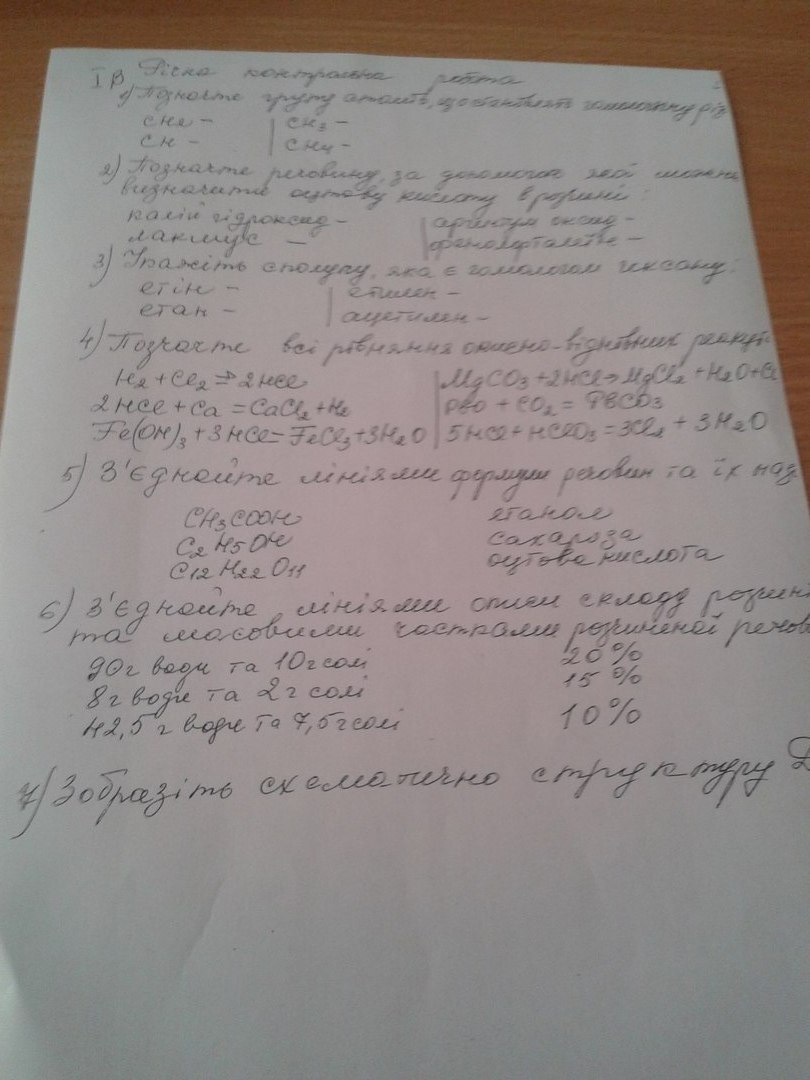 І В Річна контрольна робота
1) Позначте групу атомів, що становлять гомологічну різ
CH2 – | CH3 –
CH – | CH4 –
2) Позначте речовину, за допомогою якої можна
визначити оцтову кислоту в розчині:
калій гідроксид – | аргентум оксид –
лакмус – | фенолфталеїн –
3) Укажіть сполуку, яка є гомологом гексану:
етін – | етилен –
етан – | ацетилен –
4) Позначте всі рівняння окисно-відновних реакцій
H2 + Cl2 → 2HCl | MgCO3 + 2HCl → MgCl2 + H2O + C
2HCl + Ca = CaCl2 + H2 | PbO + CO2 = PbCO3
Fe(OH)3 + 3HCl = FeCl3 + 3H2O | 5HCl + HClO3 = 3Cl2 + 3H2O
5) З'єднайте лініями формули речовин та їх наз
CH3COOH етанол
C2H5OH сахароза
C12H22O11 оцтова кислота
6) З'єднайте лініями описи складу розчин
та масовими частками розчиненої речов
90г води та 10г солі 20%
8г води та 2г солі 15%
42,5г води та 7,5г солі 10%
7) Зобразіть схематично структуру